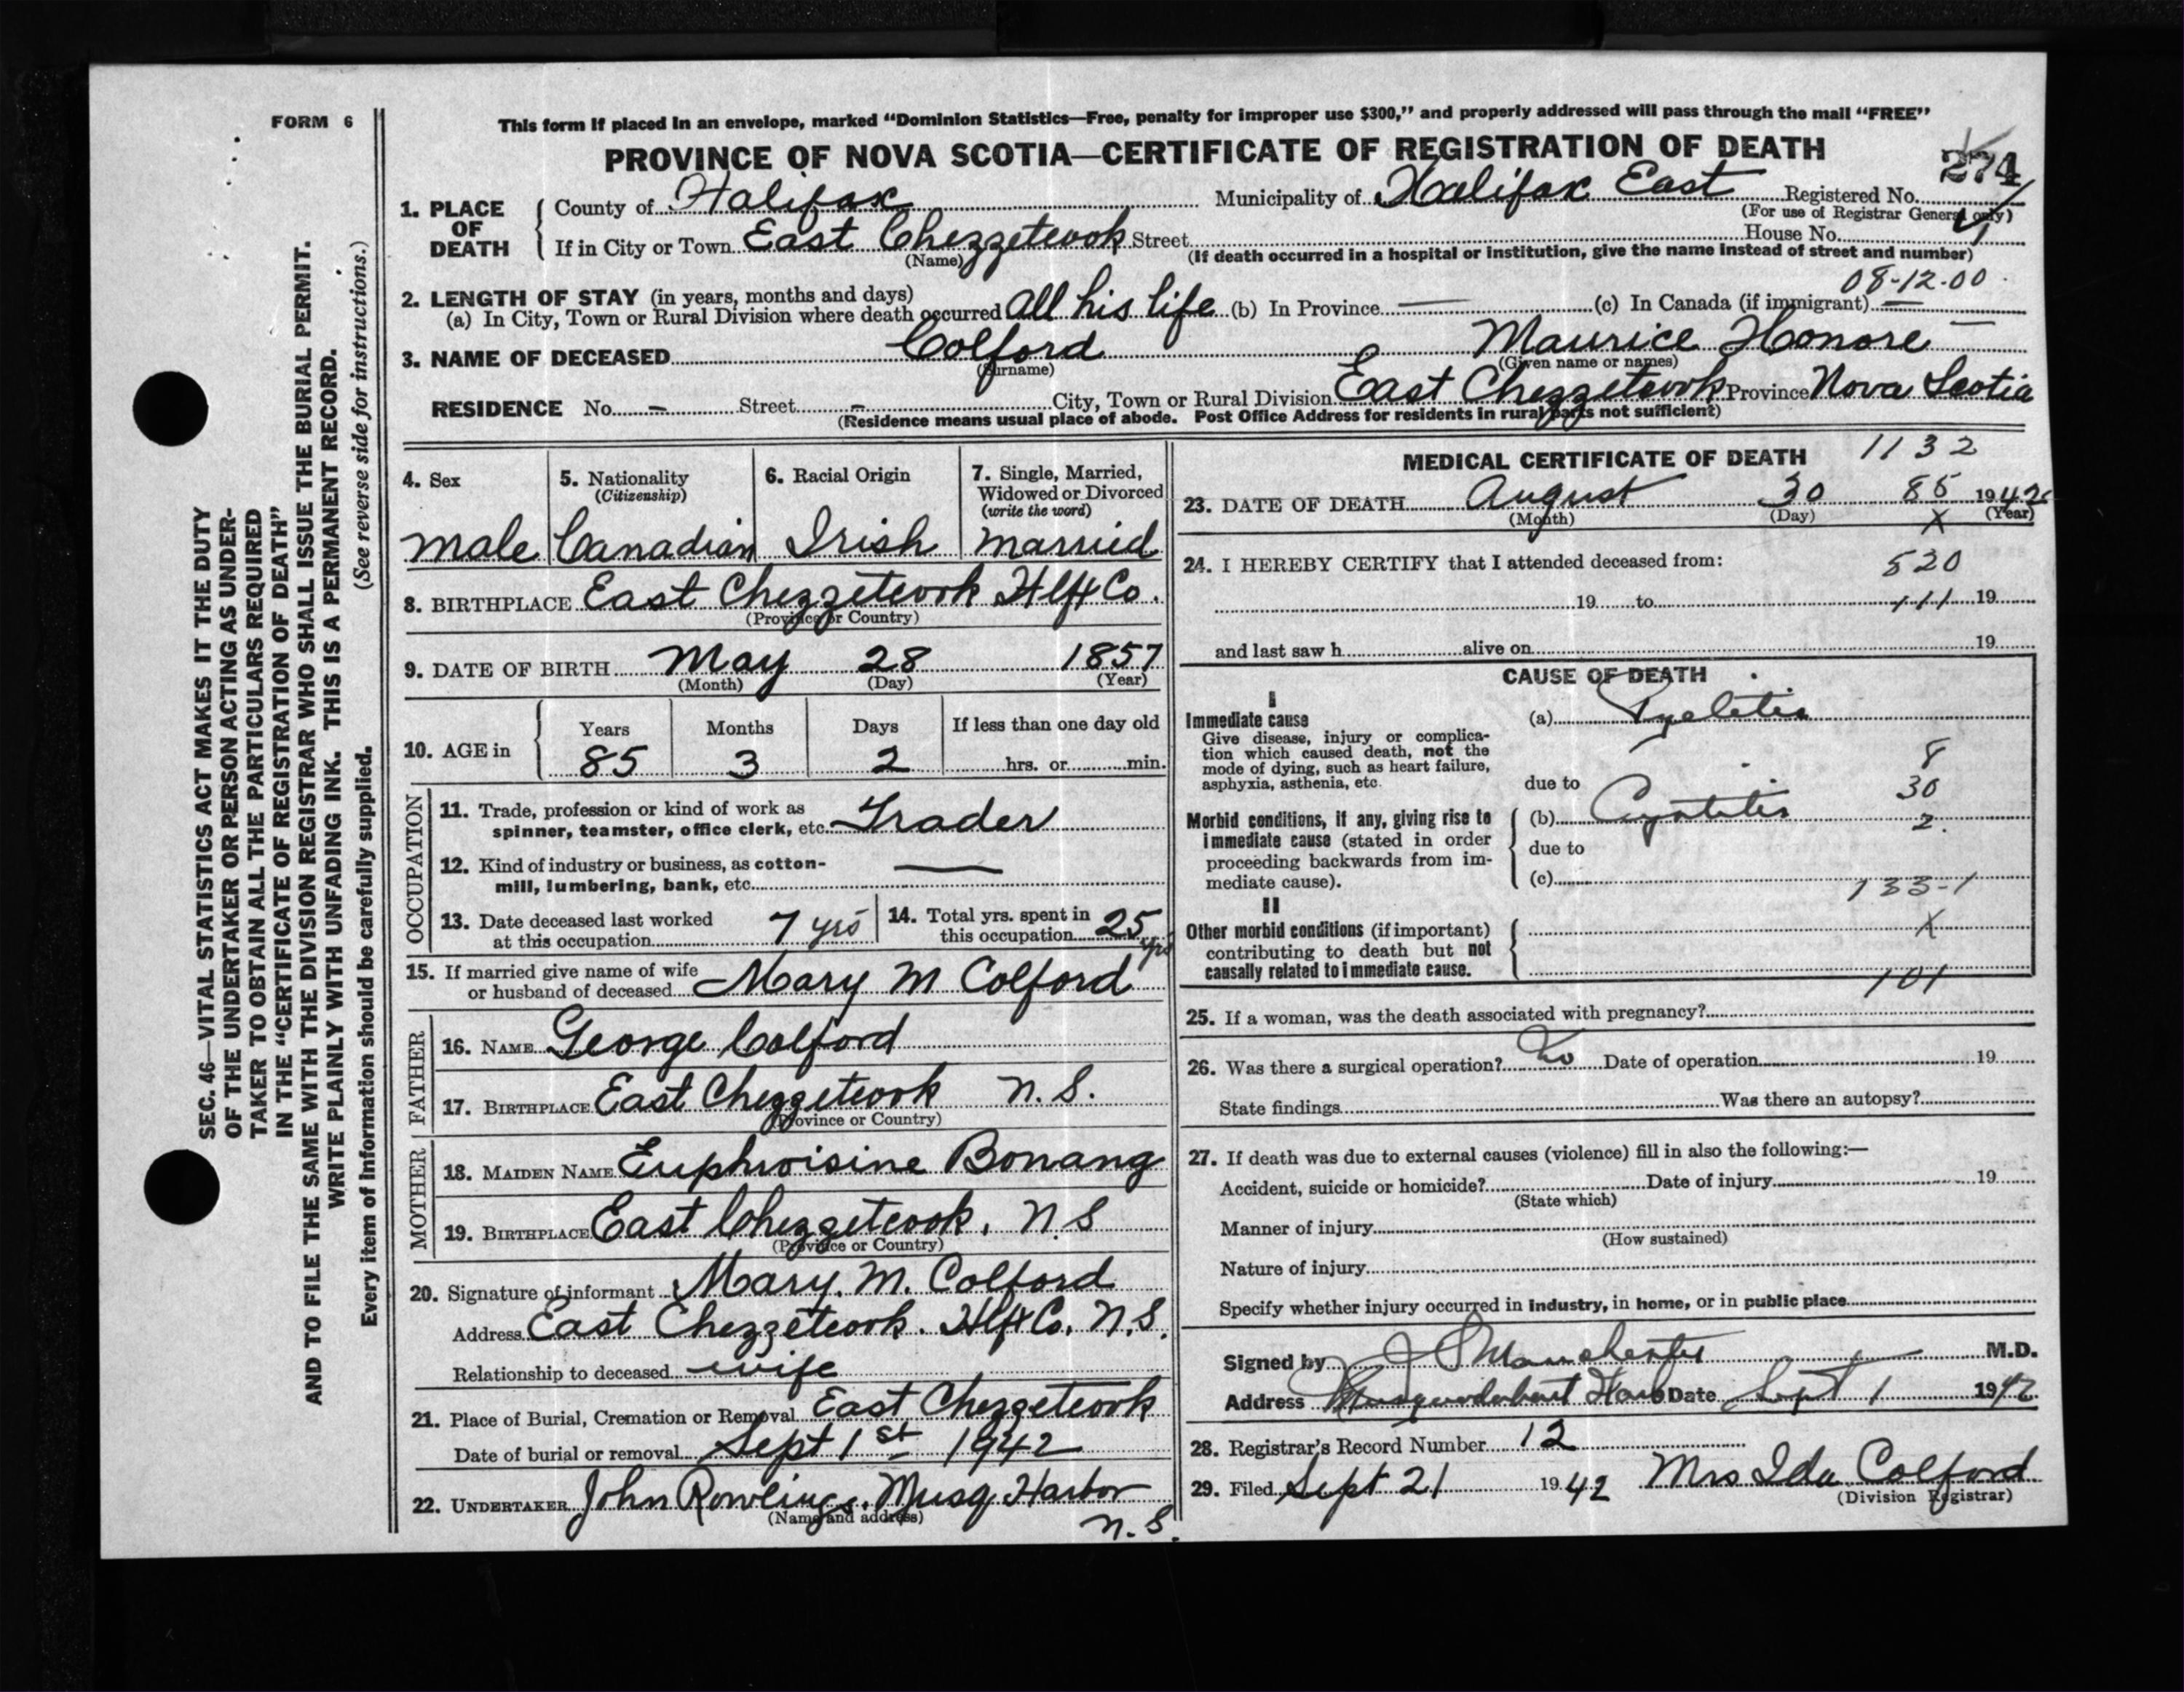 FORM 6
This form if placed in an envelope, marked “Dominion Statistics—Free, penalty for improper use $300,” and properly addressed will pass through the mail “FREE”
PROVINCE OF NOVA SCOTIA—CERTIFICATE OF REGISTRATION OF DEATH
274
1. PLACE OF DEATH
County of Halifax Municipality of Halifax East Registered No.
(For use of Registrar General only)
If in City or Town East Chezzetcook Street House No.
(Name) (If death occurred in a hospital or institution, give the name instead of street and number)
08-12-00
2. LENGTH OF STAY (in years, months and days)
(a) In City, Town or Rural Division where death occurred All his life (b) In Province — (c) In Canada (if immigrant) —
3. NAME OF DECEASED Colford Maurice Honore
(Surname) (Given name or names)
RESIDENCE No. - Street - City, Town or Rural Division East Chezzetcook Province Nova Scotia
(Residence means usual place of abode. Post Office Address for residents in rural parts not sufficient)
4. Sex
male
5. Nationality
(Citizenship)
Canadian
6. Racial Origin
Irish
7. Single, Married,
Widowed or Divorced
(write the word)
married
8. BIRTHPLACE East Chezzetcook Hlfx Co.
(Province or Country)
9. DATE OF BIRTH May 28 1857
(Month) (Day) (Year)
10. AGE in
Years Months Days If less than one day old
85 3 2 hrs. or min.
OCCUPATION
11. Trade, profession or kind of work as
spinner, teamster, office clerk, etc. Trader
12. Kind of industry or business, as cotton-
mill, lumbering, bank, etc. —
13. Date deceased last worked
at this occupation 7 yrs
14. Total yrs. spent in
this occupation 25 yrs
15. If married give name of wife
or husband of deceased Mary M Colford
FATHER
16. NAME George Colford
17. BIRTHPLACE East Chezzetcook N.S.
(Province or Country)
MOTHER
18. MAIDEN NAME Euphroisine Bonang
19. BIRTHPLACE East Chezzetcook, N.S
(Province or Country)
20. Signature of informant Mary. M. Colford
Address East Chezzetcook. Hlfx Co. N.S.
Relationship to deceased wife
21. Place of Burial, Cremation or Removal East Chezzetcook
Date of burial or removal Sept 1st 1942
22. UNDERTAKER John Rowlings, Musq Harbor
(Name and address)
N.S.
MEDICAL CERTIFICATE OF DEATH 1132
23. DATE OF DEATH August 30 85 1942
(Month) (Day) X (Year)
24. I HEREBY CERTIFY that I attended deceased from: 520
19 to 111 19
and last saw h alive on 19
CAUSE OF DEATH
I
Immediate cause
Give disease, injury or complica-
tion which caused death, not the
mode of dying, such as heart failure,
asphyxia, asthenia, etc.
(a) Pyelitis
8
due to
30
Morbid conditions, if any, giving rise to
immediate cause (stated in order
proceeding backwards from im-
mediate cause).
(b) Cystitis 2.
due to
(c)
133-1
II
Other morbid conditions (if important)
contributing to death but not
causally related to immediate cause.
X
101
25. If a woman, was the death associated with pregnancy?
26. Was there a surgical operation? No Date of operation 19
State findings Was there an autopsy?
27. If death was due to external causes (violence) fill in also the following:—
Accident, suicide or homicide? Date of injury 19
(State which)
Manner of injury
(How sustained)
Nature of injury
Specify whether injury occurred in industry, in home, or in public place
Signed by Manchester M.D.
Address Musquodoboit Harb Date Sept 1 1942
28. Registrar's Record Number 12
29. Filed Sept 21 1942 Mrs Ida Colford
(Division Registrar)
SEC. 46—VITAL STATISTICS ACT MAKES IT THE DUTY
OF THE UNDERTAKER OR PERSON ACTING AS UNDER-
TAKER TO OBTAIN ALL THE PARTICULARS REQUIRED
IN THE “CERTIFICATE OF REGISTRATION OF DEATH”
AND TO FILE THE SAME WITH THE DIVISION REGISTRAR WHO SHALL ISSUE THE BURIAL PERMIT.
WRITE PLAINLY WITH UNFADING INK. THIS IS A PERMANENT RECORD.
Every item of information should be carefully supplied. (See reverse side for instructions.)